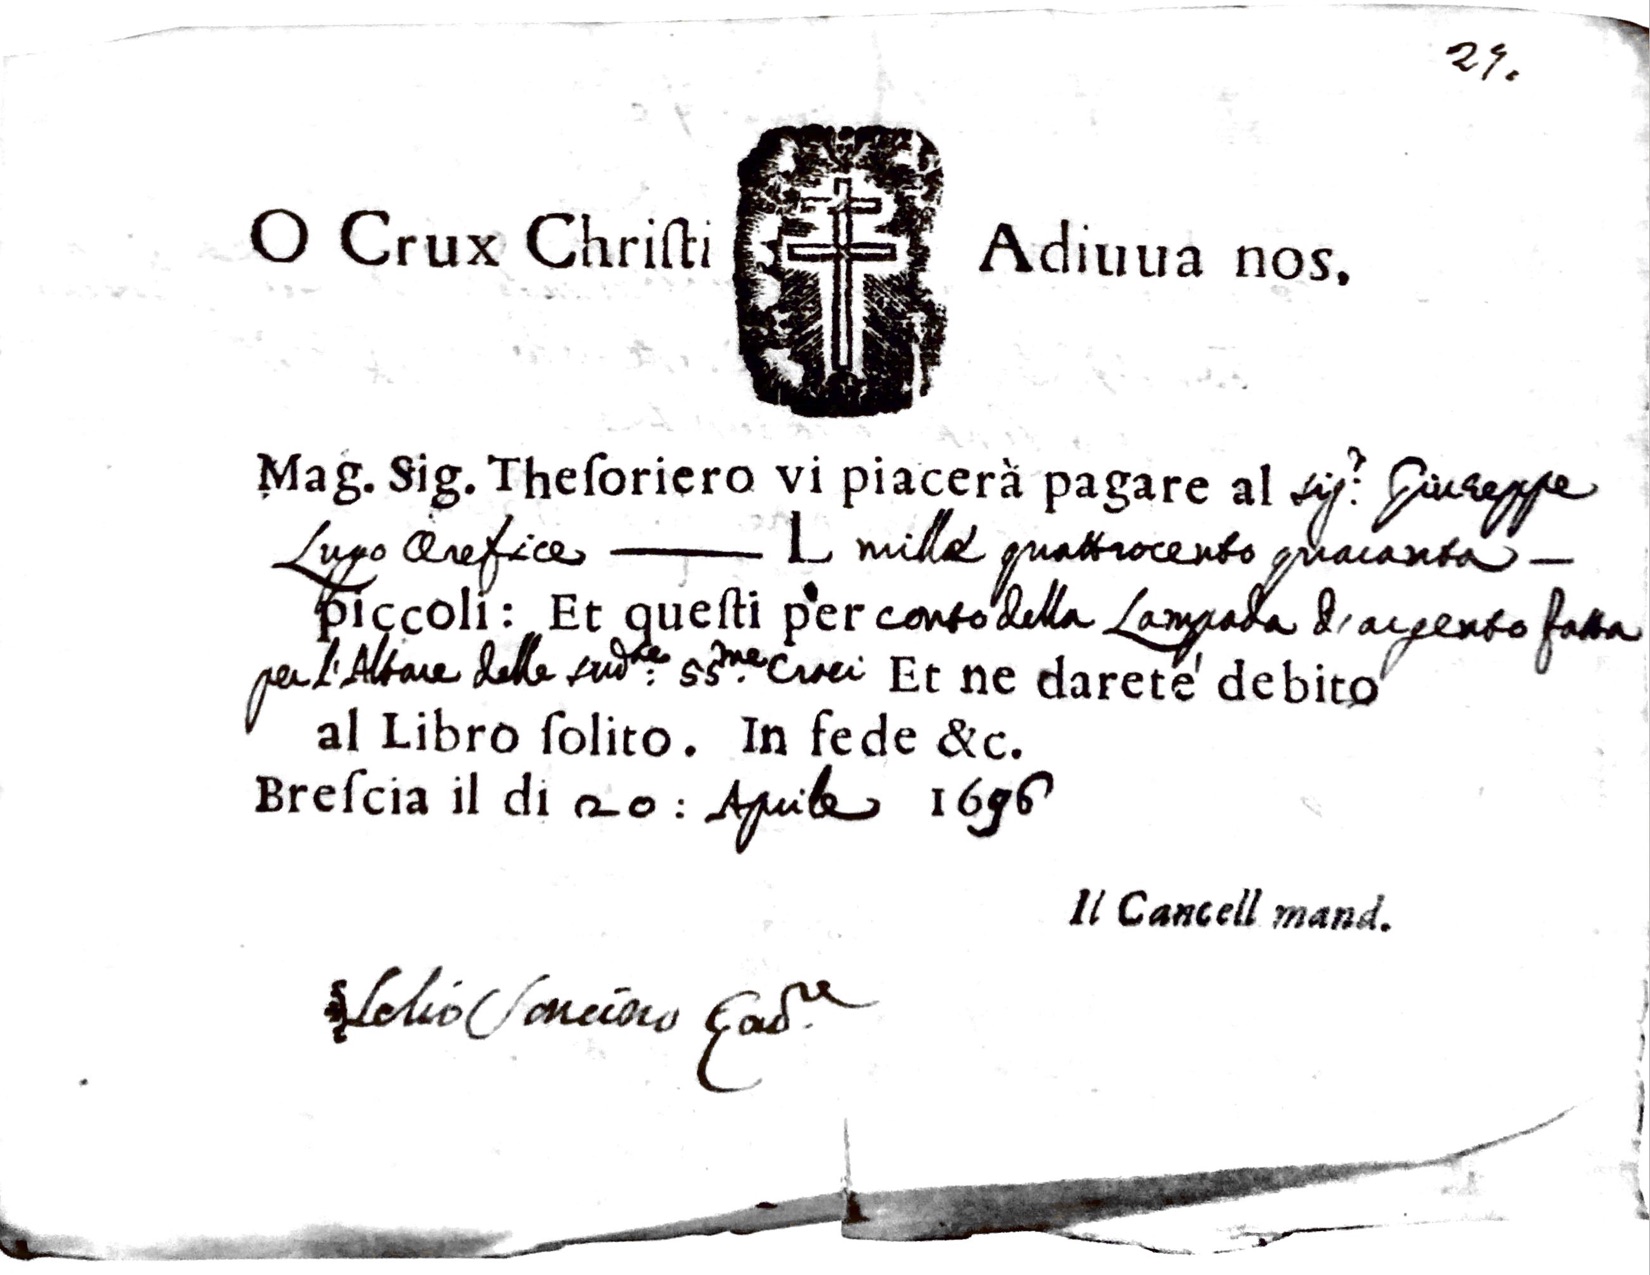 29.
O Crux Chriſti Adiuua nos.
Mag. Sig. Theſoriero vi piacerà pagare al sig.r Giuseppe
Lugo Orefice —— L mille quattrocento quaranta —
piccoli: Et queſti per conto della Lampada d'argento fatta
per l'Altare delle sud.te SS.me Croci Et ne darete debito
al Libro ſolito. In fede &c.
Breſcia il di 20: Aprile 1696
Il Cancell mand.
Lelio